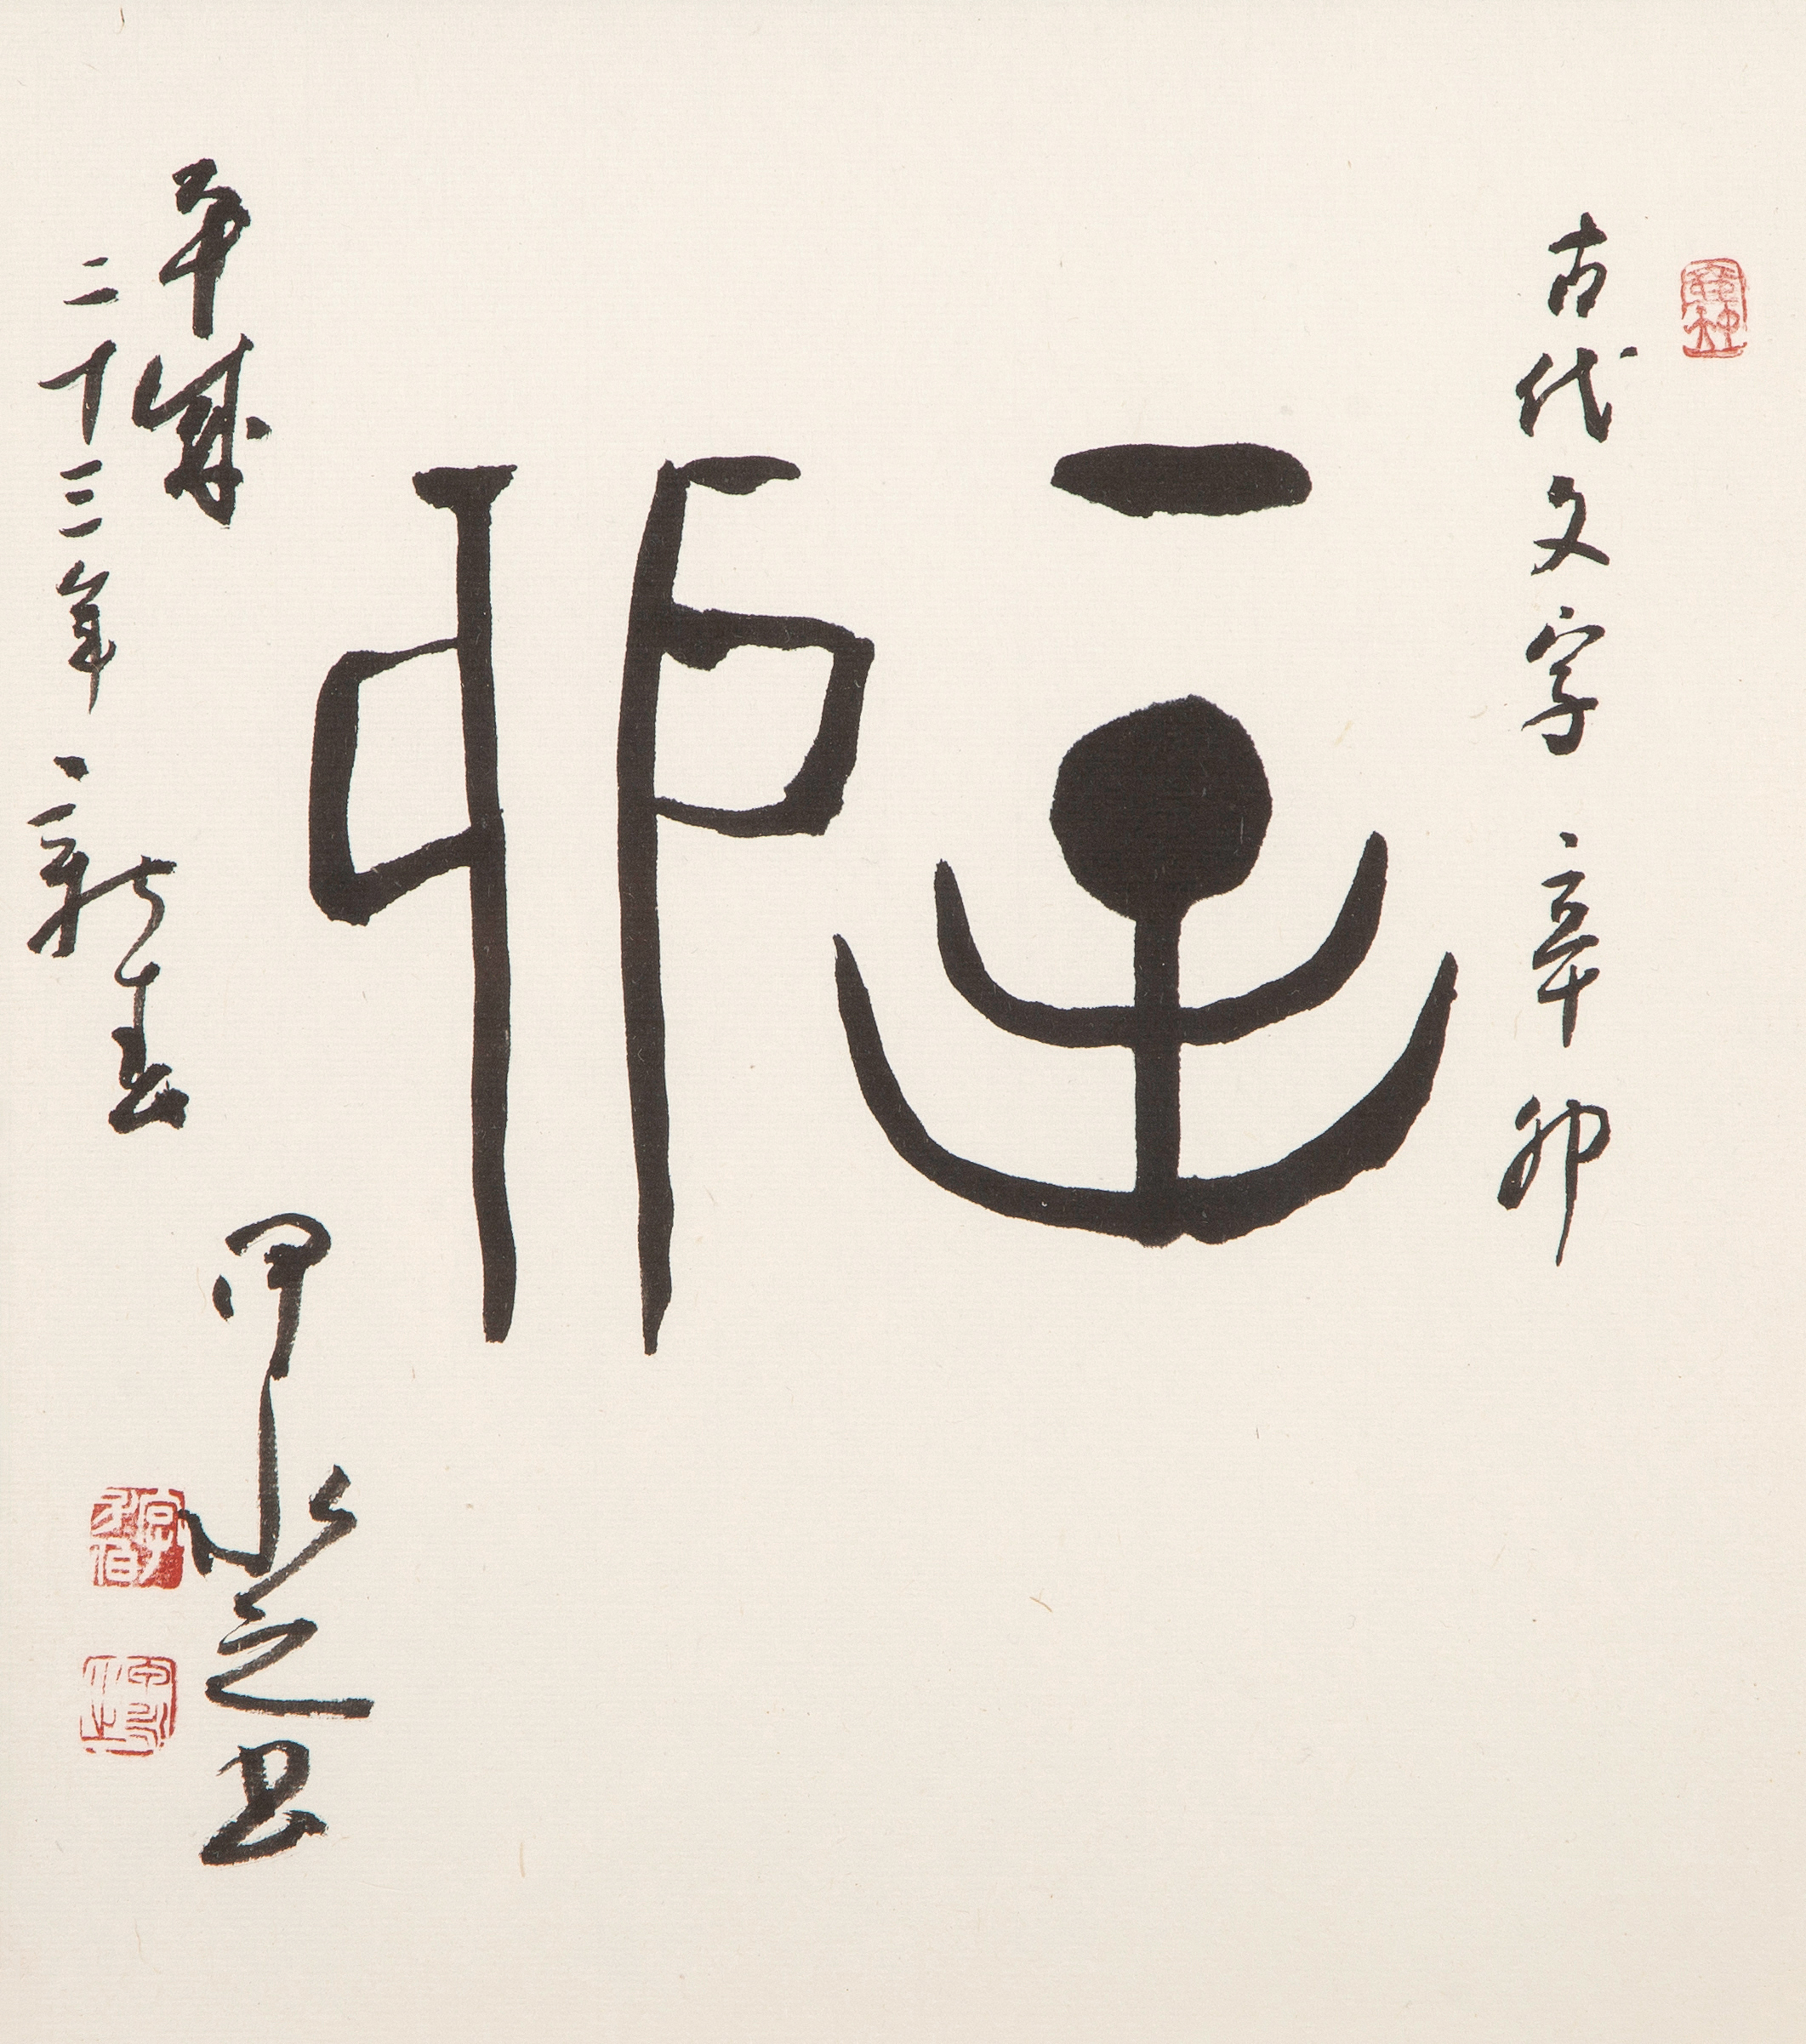 古代文字 辛卯
辛卯
平成
二十三年 新春
之書